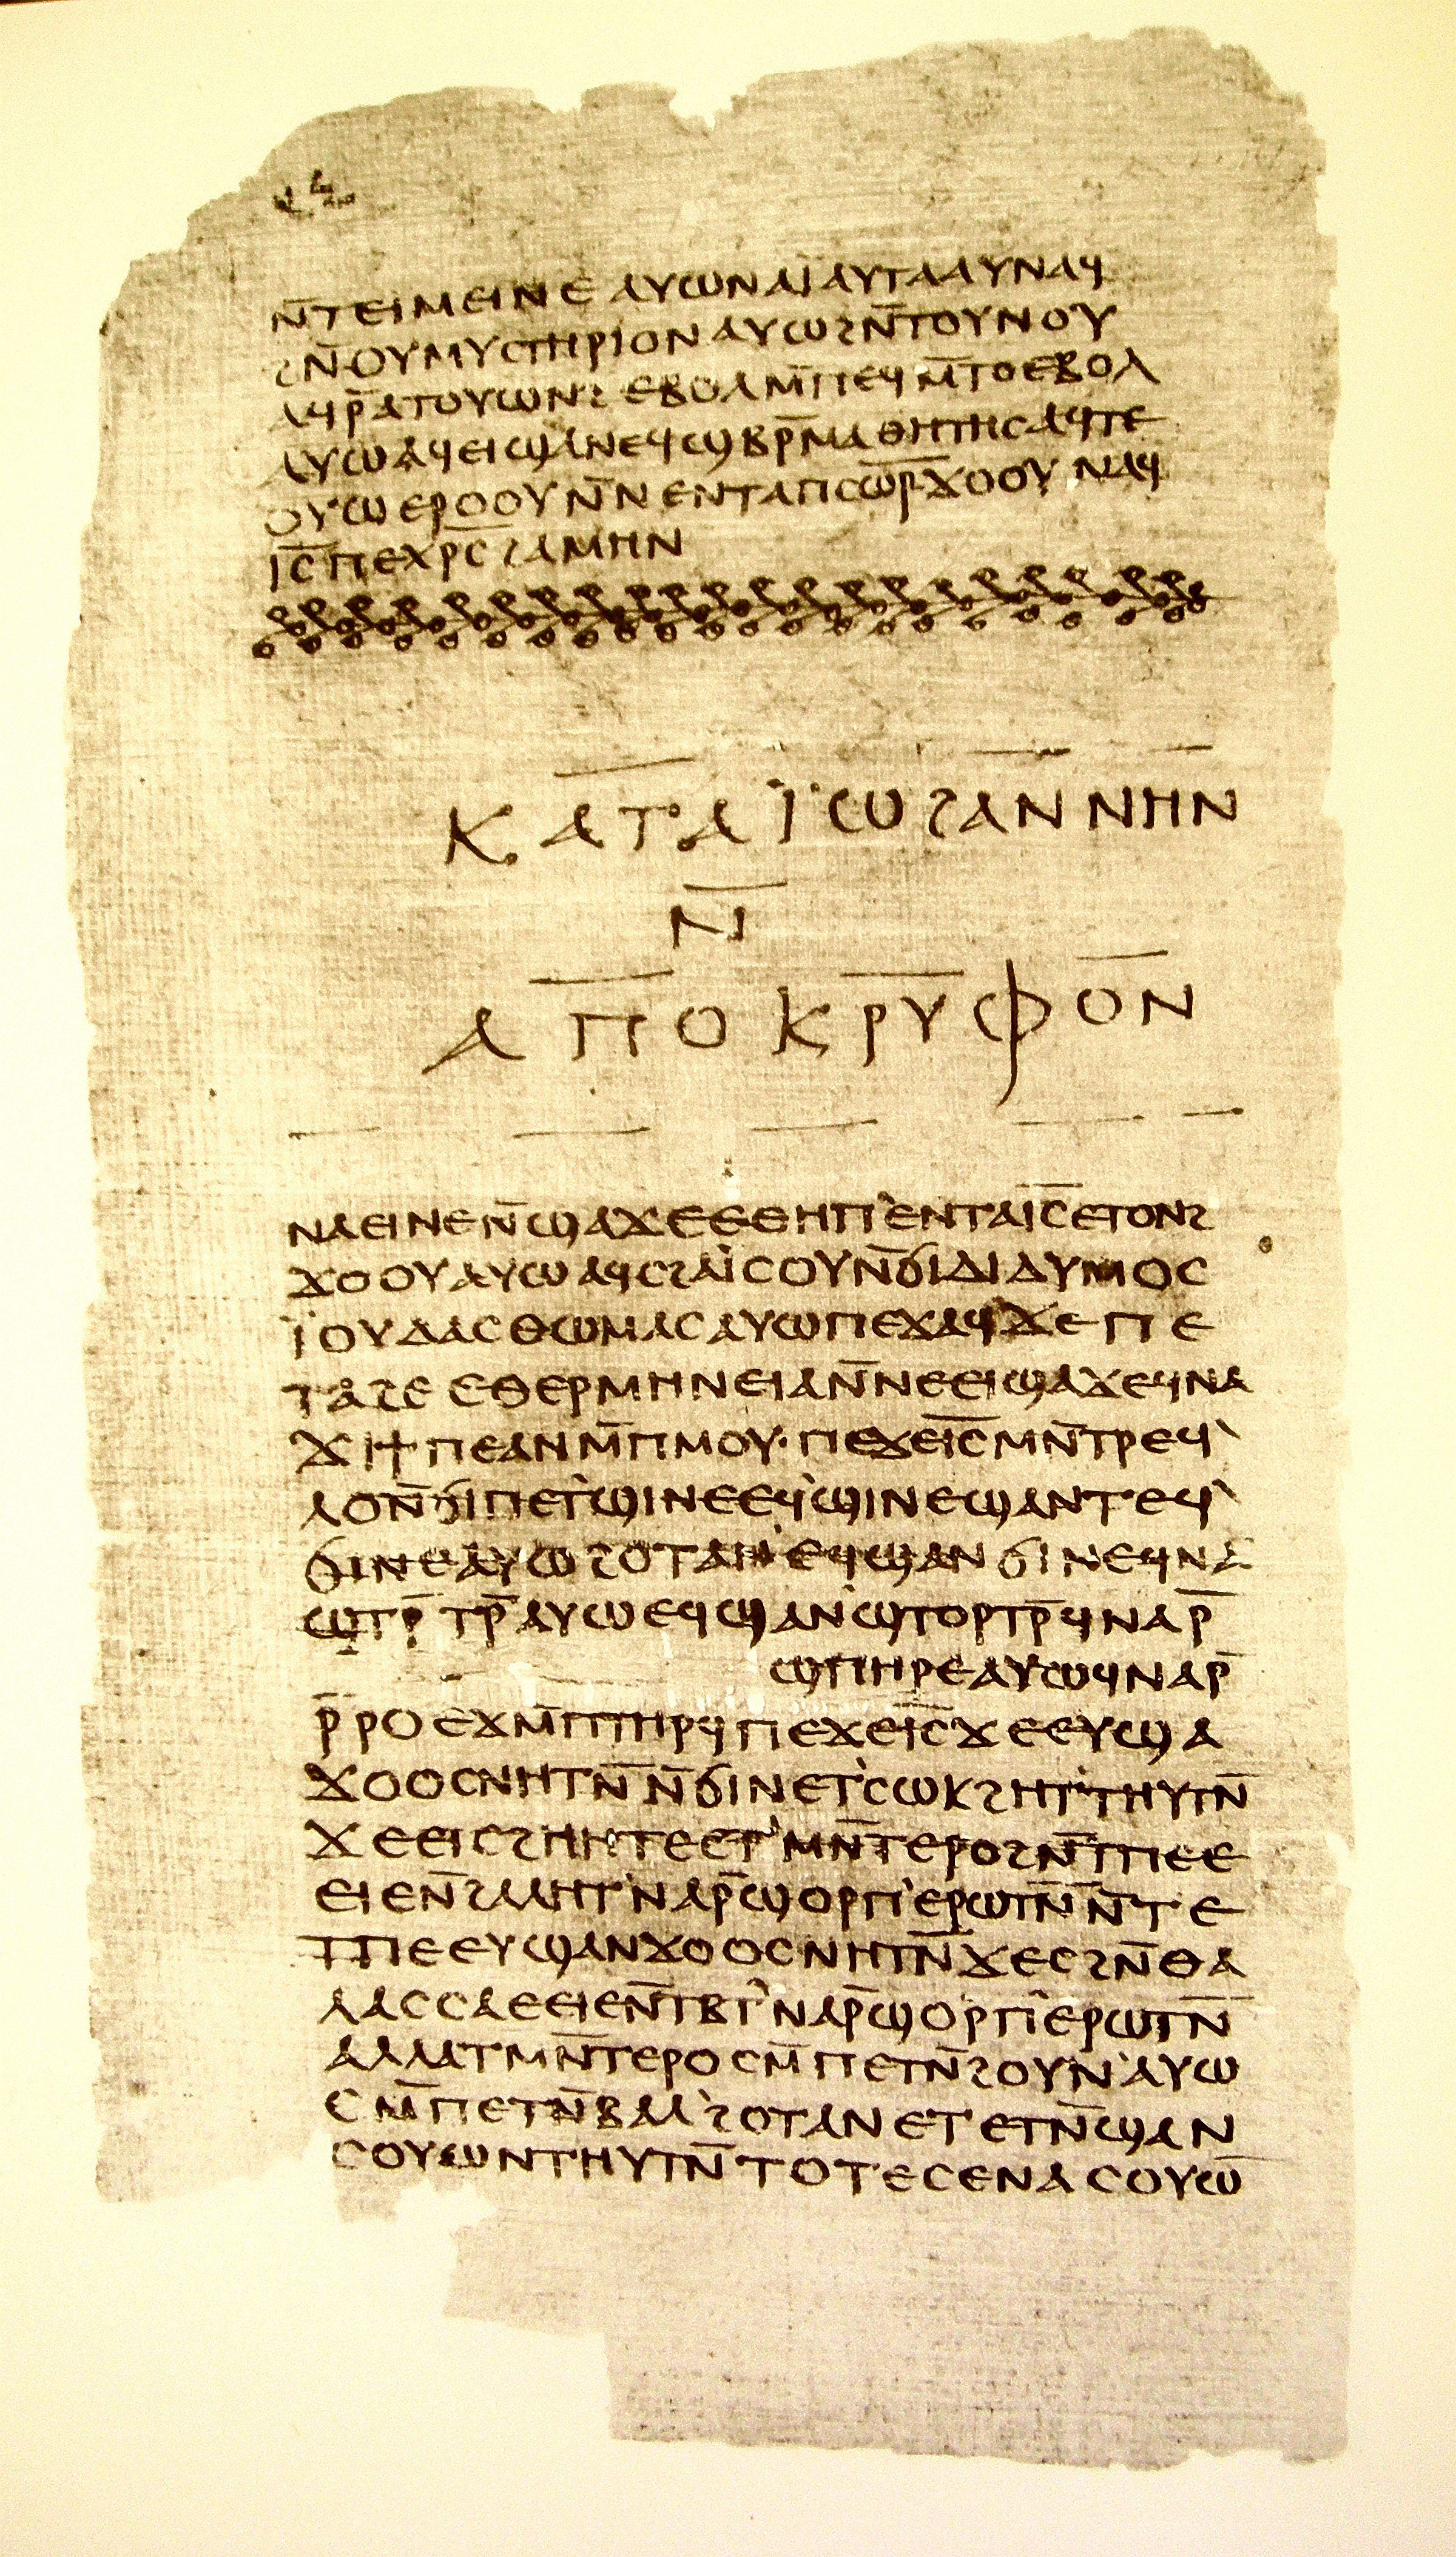 ⲛ̄ⲧⲉⲓⲙⲉⲓⲛⲉ ⲁⲩⲱ ⲛⲁⲓ̈ ⲁⲩⲧⲁⲁⲩ ⲛⲁϥ
ϩⲛ̄ ⲟⲩⲙⲩⲥⲧⲏⲣⲓⲟⲛ ⲁⲩⲱ ϩⲛ̄ ⲧⲟⲩⲛⲟⲩ
ⲁϥⲣ̄ ⲁⲧⲟⲩⲱⲛϩ ⲉⲃⲟⲗ ⲙ̄ⲡⲉϥⲙ̄ⲧⲟ ⲉⲃⲟⲗ
ⲁⲩⲱ ⲁϥⲉⲓ ϣⲁ ⲛⲉϥϣⲃⲣ̄ⲙⲁⲑⲏⲧⲏⲥ ⲁϥⲧⲉ
ⲟⲩⲱ ⲉⲣⲟⲟⲩ ⲛ̄ⲛⲉⲛⲧⲁ ⲡⲥⲱ̄ⲣ̄ ϫⲟⲟⲩ ⲛⲁϥ
ⲓⲥ̄ ⲡⲉⲭⲣⲥ̄ ϩⲁⲙⲏⲛ
ⲕⲁⲧⲁ ⲓ̈ⲱϩⲁⲛⲛⲏⲛ
ⲛ̄
ⲁⲡⲟⲕⲣⲩⲫⲟⲛ
ⲛⲁⲉⲓ ⲛⲉ ⲛ̄ϣⲁϫⲉ ⲉⲑⲏⲡ ⲉⲛⲧⲁ ⲓⲥ̄ ⲉⲧⲟⲛϩ
ϫⲟⲟⲩ ⲁⲩⲱ ⲁϥⲥϩⲁⲓ̈ⲥⲟⲩ ⲛ̄ϭⲓ ⲇⲓⲇⲩⲙⲟⲥ
ⲓ̈ⲟⲩⲇⲁⲥ ⲑⲱⲙⲁⲥ ⲁⲩⲱ ⲡⲉϫⲁϥ ϫⲉ ⲡⲉ
ⲧⲁϩⲉ ⲉⲑⲉⲣⲙⲏⲛⲉⲓⲁ ⲛ̄ⲛⲉⲉⲓϣⲁϫⲉ ϥⲛⲁ
ϫⲓ ϯⲡⲉ ⲁⲛ ⲙ̄ⲡⲙⲟⲩ· ⲡⲉϫⲉ ⲓⲥ̄ ⲙⲛ̄ⲧⲣⲉϥ
ⲗⲟ ⲛ̄ϭⲓ ⲡⲉⲧϣⲓⲛⲉ ⲉϥϣⲓⲛⲉ ϣⲁⲛⲧⲉϥ
ϭⲓⲛⲉ ⲁⲩⲱ ϩⲟⲧⲁⲛ ⲉϥϣⲁⲛϭⲓⲛⲉ ϥⲛⲁ
ϣⲧⲣ̄ⲧⲣ̄ ⲁⲩⲱ ⲉϥϣⲁⲛϣⲧⲟⲣⲧⲣ̄ ϥⲛⲁⲣ̄
ϣⲡⲏⲣⲉ ⲁⲩⲱ ϥⲛⲁⲣ̄
ⲣ̄ⲣⲟ ⲉϫⲙ̄ ⲡⲧⲏⲣϥ ⲡⲉϫⲉ ⲓⲥ̄ ϫⲉ ⲉⲩϣⲁ
ϫⲟⲟⲥ ⲛⲏⲧⲛ̄ ⲛ̄ϭⲓ ⲛⲉⲧⲥⲱⲕ ϩⲏⲧⲧⲏⲩⲧⲛ̄
ϫⲉ ⲉⲓⲥϩⲏⲏⲧⲉ ⲉⲧⲙⲛ̄ⲧⲉⲣⲟ ϩⲛ̄ ⲧⲡⲉ ⲉ
ⲉⲓⲉ ⲛ̄ϩⲁⲗⲏⲧ ⲛⲁⲣ̄ ϣⲟⲣⲡ ⲉⲣⲱⲧⲛ̄ ⲛ̄ⲧⲉ
ⲧⲡⲉ ⲉⲩϣⲁⲛϫⲟⲟⲥ ⲛⲏⲧⲛ̄ ϫⲉ ⲥϩⲛ̄ ⲑⲁ
ⲗⲁⲥⲥⲁ ⲉⲉⲓⲉ ⲛ̄ⲧⲃⲧ ⲛⲁⲣ̄ ϣⲟⲣⲡ ⲉⲣⲱⲧⲛ̄
ⲁⲗⲗⲁ ⲧⲙⲛ̄ⲧⲉⲣⲟ ⲥⲙ̄ⲡⲉⲧⲛ̄ϩⲟⲩⲛ ⲁⲩⲱ
ⲥⲙ̄ⲡⲉⲧⲛ̄ⲃⲁⲗ ϩⲟⲧⲁⲛ ⲉⲧⲉⲧⲛ̄ϣⲁⲛ
ⲥⲟⲩⲱⲛ ⲧⲏⲩⲧⲛ̄ ⲧⲟⲧⲉ ⲥⲉⲛⲁⲥⲟⲩⲱ̄